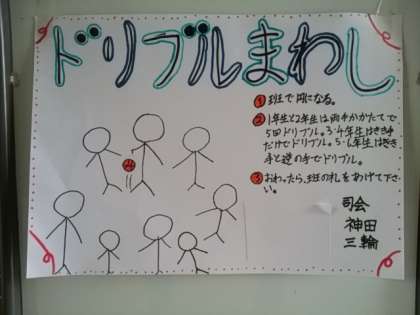 ドリブルまわし
① 班で円になる。
② 1年生と2年生は両手かかたてで
5回ドリブル。3・4年生はきき手
だけでドリブル。5・6年生はきき
手と逆の手でドリブル。
③ おわったら、班の札をあげて下さ
い。
司会
神田
三輪